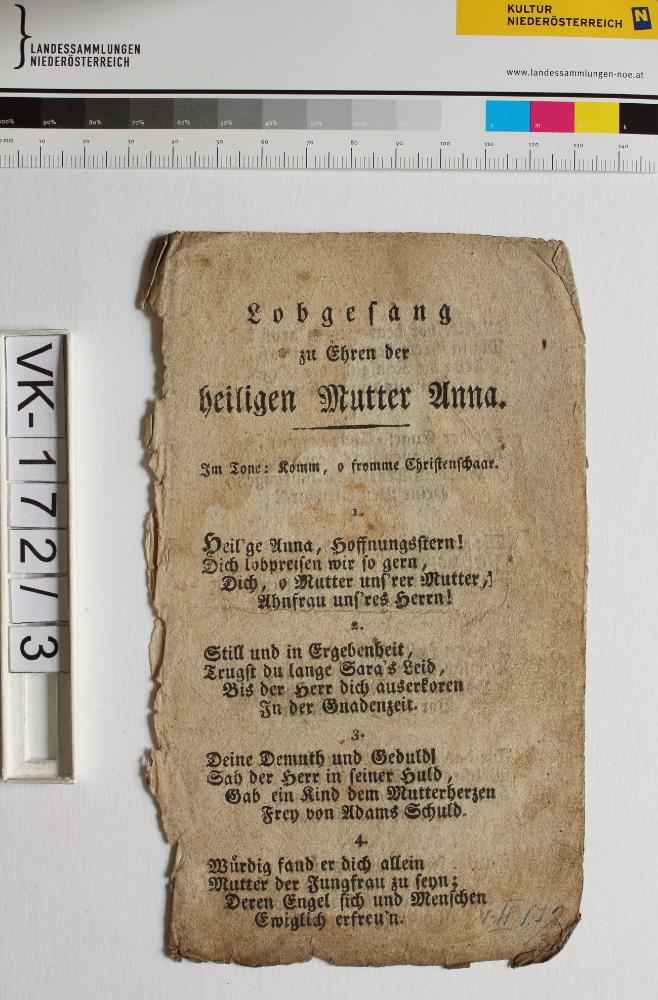 LANDESSAMMLUNGEN
NIEDERÖSTERREICH
KULTUR
NIEDERÖSTERREICH
N
www.landessammlungen-noe.at
100% 90% 80% 70% 60% 50% 40% 30% 20% 10% c m y k
0 mm 10 20 30 40 50 60 70 80 90 100 110 120 130 140
VK-172/3
Lobgesang
zu Ehren der
heiligen Mutter Anna.
Im Tone: Komm, o fromme Christenschaar.
1.
Heil'ge Anna, Hoffnungsstern!
Dich lobpreisen wir so gern,
Dich, o Mutter uns'rer Mutter,
Ahnfrau uns'res Herrn!
2.
Still und in Ergebenheit,
Trugst du lange Sara's Leid,
Bis der Herr dich auserkoren
In der Gnadenzeit.
3.
Deine Demuth und Geduld
Sah der Herr in seiner Huld,
Gab ein Kind dem Mutterherzen
Frey von Adams Schuld.
4.
Würdig fand er dich allein
Mutter der Jungfrau zu seyn;
Deren Engel sich und Menschen
Ewiglich erfreu'n.